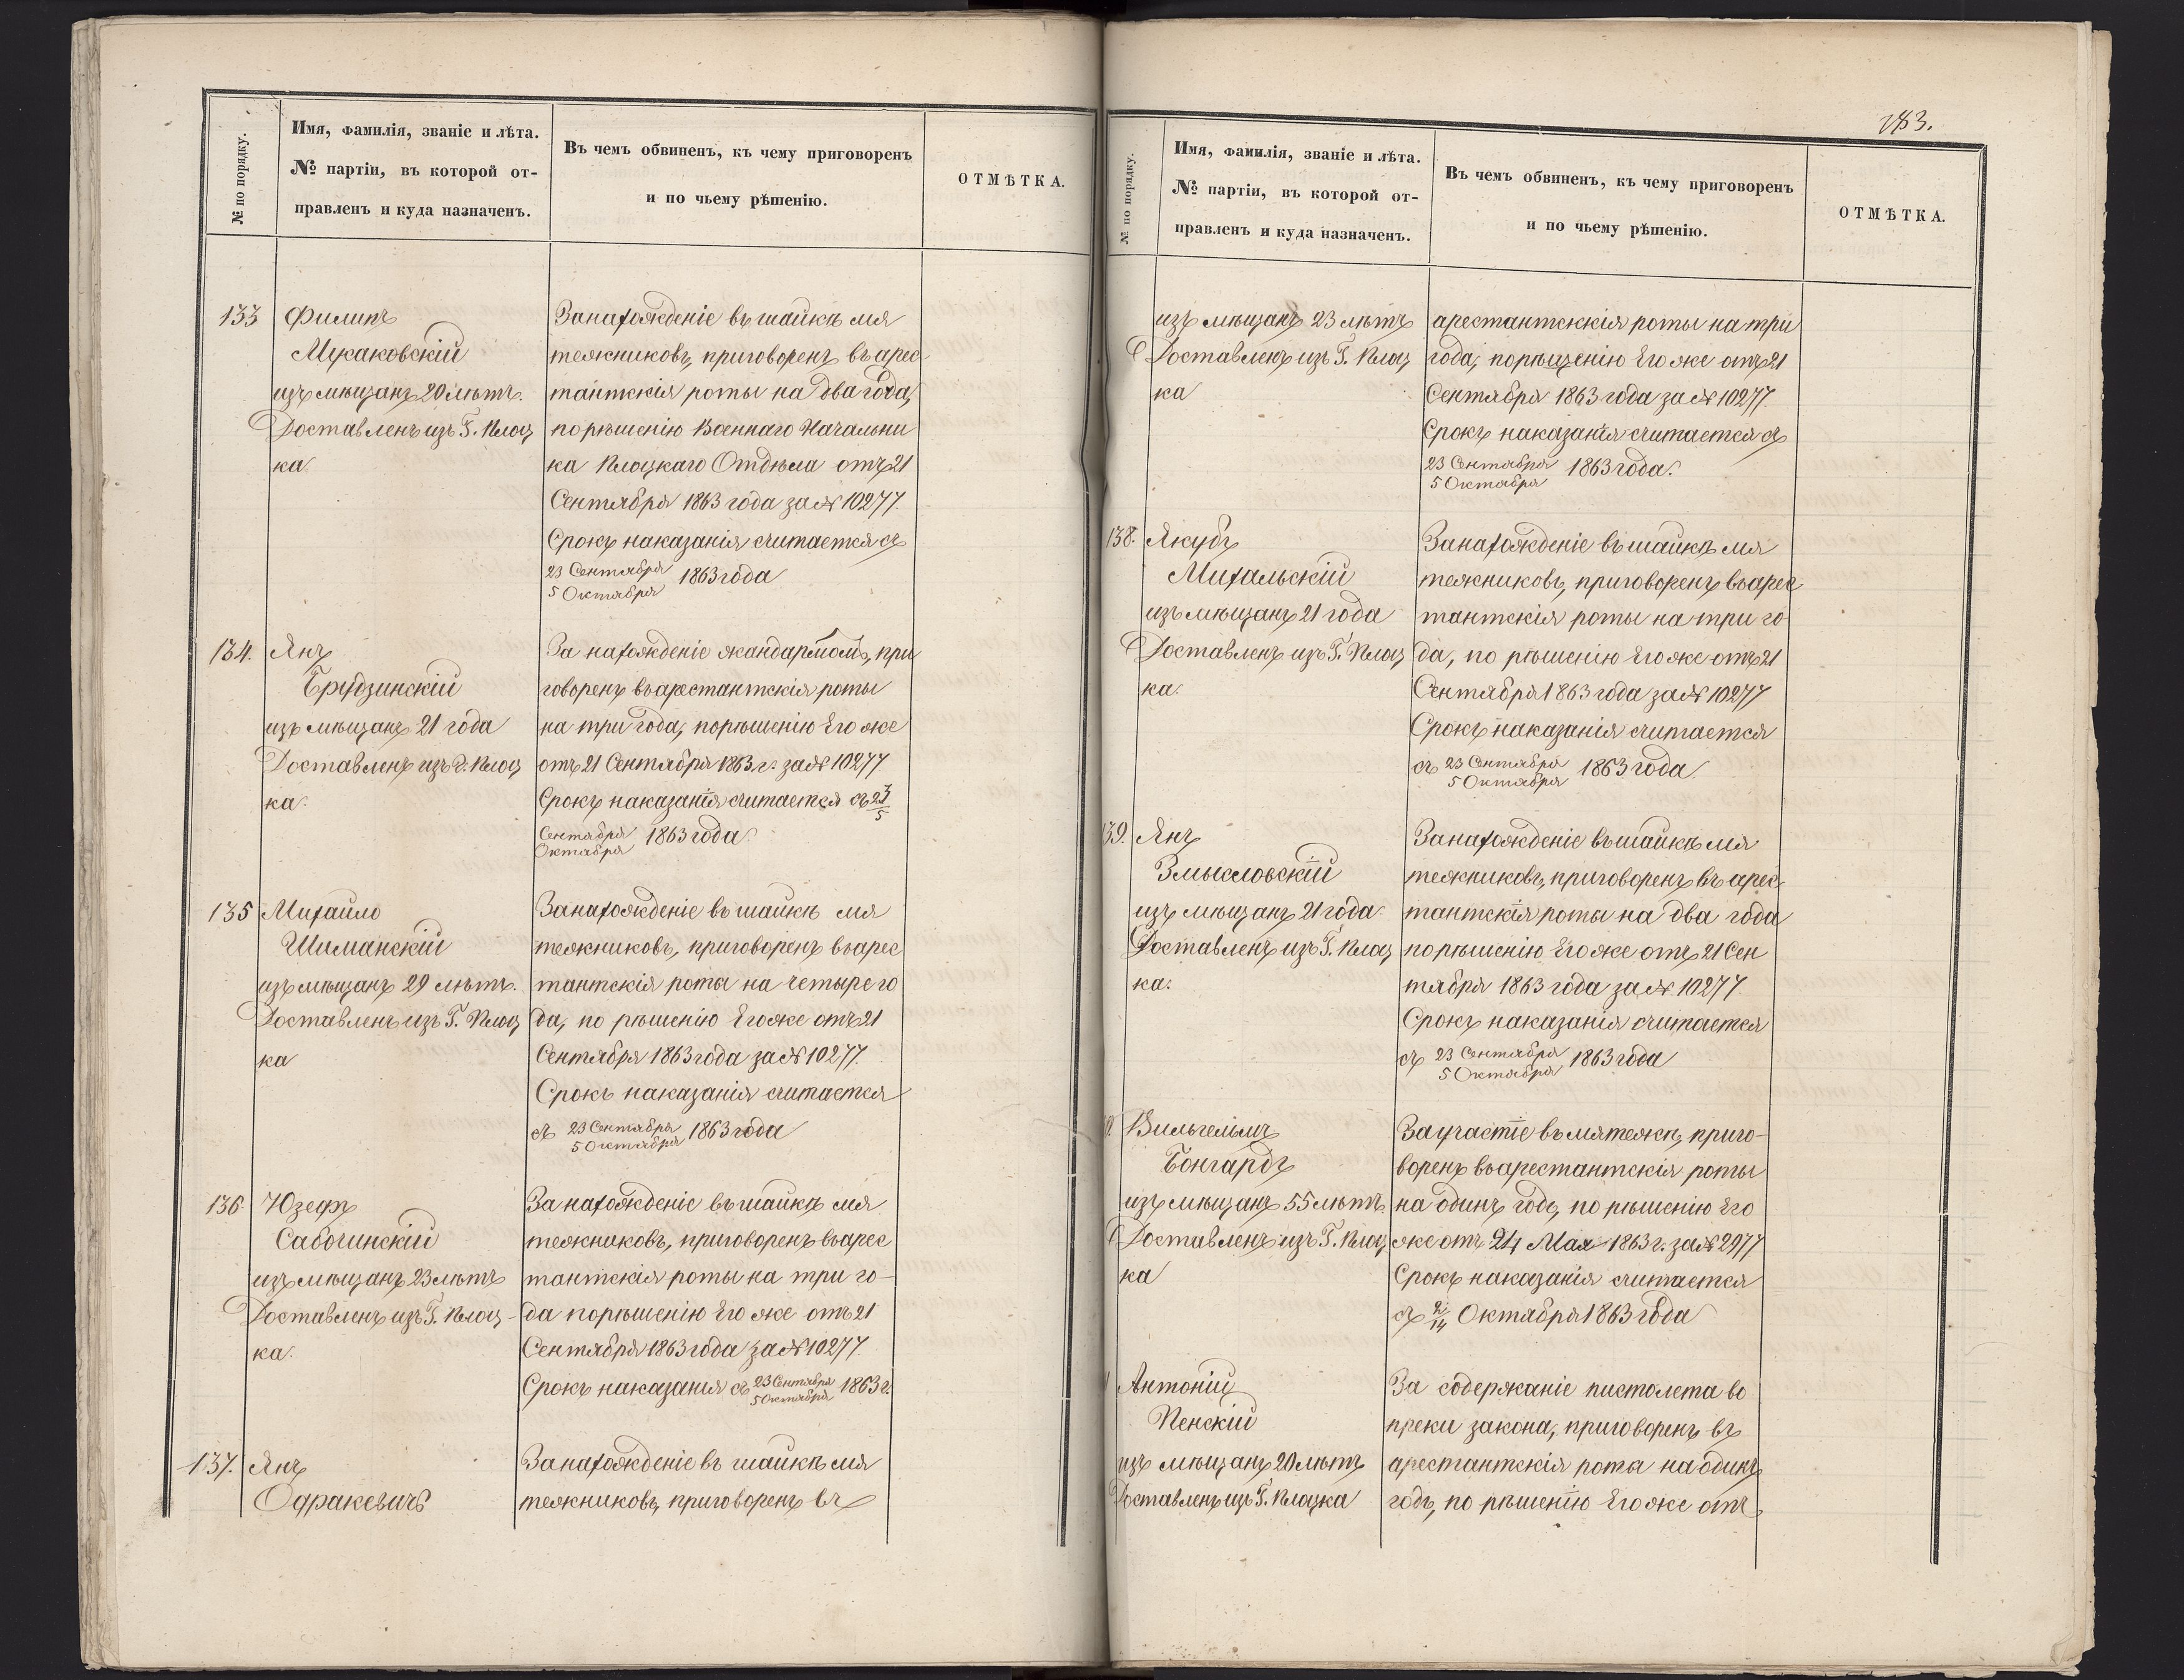 № по порядку.
Имя, фамилія, званіе и лѣта.
№ партіи, въ которой от-
правленъ и куда назначенъ.
Въ чемъ обвиненъ, къ чему приговоренъ
и по чьему рѣшенію.
ОТМѢТКА.
133 Филипъ
Мукаковскій
изъ мѣщанъ 20 лѣтъ.
Доставленъ изъ Г. Плоц
ка.
За нахожденіе въ шайкѣ мя
тежниковъ, приговоренъ въ арес
тантскія роты на два года,
по рѣшенію Военнаго Начальни
ка Плоцкаго Отдѣла отъ 21
Сентября 1863 года за № 10277.
Срокъ наказанія считается съ
23 Сентября
5 Октября 1863 года
134. Янъ
Брудзинскій
изъ мѣщанъ 21 года
Доставленъ изъ г. Плоц
ка.
За нахожденіе жандармомъ, при
говоренъ въ арестантскія роты
на три года, по рѣшенію Его же
отъ 21 Сентября 1863 г. за № 10277
Срокъ наказанія считается съ 23/5
Сентября
Октября 1863 года.
135 Михайло
Шиманскій
изъ мѣщанъ 29 лѣтъ.
Доставленъ изъ Г. Плоц
ка
За нахожденіе въ шайкѣ мя
тежниковъ, приговоренъ въ арес
тантскія роты на четыре го
да, по рѣшенію Его же отъ 21
Сентября 1863 года за № 10277.
Срокъ наказанія считается
съ 23 Сентября
5 Октября 1863 года
136. Юзефъ
Сабочинскій
изъ мѣщанъ 23 лѣтъ
Доставленъ изъ Г. Плоц-
ка.
За нахожденіе въ шайкѣ мя
тежниковъ, приговоренъ въ арес
тантскія роты на три го-
да по рѣшенію Его же отъ 21
Сентября 1863 года за № 10277.
Срокъ наказанія съ 23 Сентября
5 Октября 1863 г.
137. Янъ
Офракевичъ
За нахожденіе въ шайкѣ мя
тежниковъ, приговоренъ въ
183.
№ по порядку.
Имя, фамилія, званіе и лѣта.
№ партіи, въ которой от-
правленъ и куда назначенъ.
Въ чемъ обвиненъ, къ чему приговоренъ
и по чьему рѣшенію.
ОТМѢТКА.
изъ мѣщанъ 23 лѣтъ
Доставленъ изъ Г. Плоц
ка
арестантскія роты на три
года, по рѣшенію Его же отъ 21
Сентября 1863 года за № 10277.
Срокъ наказанія считается съ
23 Сентября
5 Октября 1863 года.
138. Якубъ
Михальскій
изъ мѣщанъ 21 года
Доставленъ изъ Г. Плоц
ка.
За нахожденіе въ шайкѣ мя
тежниковъ, приговоренъ въ арес
тантскія роты на три го
да, по рѣшенію Его же отъ 21
Сентября 1863 года за № 10277
Срокъ наказанія считается
съ 23 Сентября
5 Октября 1863 года.
139. Янъ
Змысловскій
изъ мѣщанъ 21 года
Доставленъ изъ Г. Плоц
ка.
За нахожденіе въ шайкѣ мя
тежниковъ, приговоренъ въ арес
тантскія роты на два года
по рѣшенію Его же отъ 21 Сен
тября 1863 года за № 10277.
Срокъ наказанія считается
съ 23 Сентября
5 Октября 1863 года
Вильгельмъ
Бонгардъ
изъ мѣщанъ 55 лѣтъ.
Доставленъ изъ Г. Плоц
ка
За участіе въ мятежѣ, приго-
воренъ въ арестантскія роты
на одинъ годъ, по рѣшенію Его
же отъ 24 Мая 1863 г. за № 2977
Срокъ наказанія считается
съ 2/14 Октября 1863 года
Антоній
Пенскій
изъ мѣщанъ 20 лѣтъ
Доставленъ изъ Г. Плоцка
За содержаніе пистолета во
преки закона, приговоренъ въ
арестантскія роты на одинъ
годъ, по рѣшенію Его же отъ